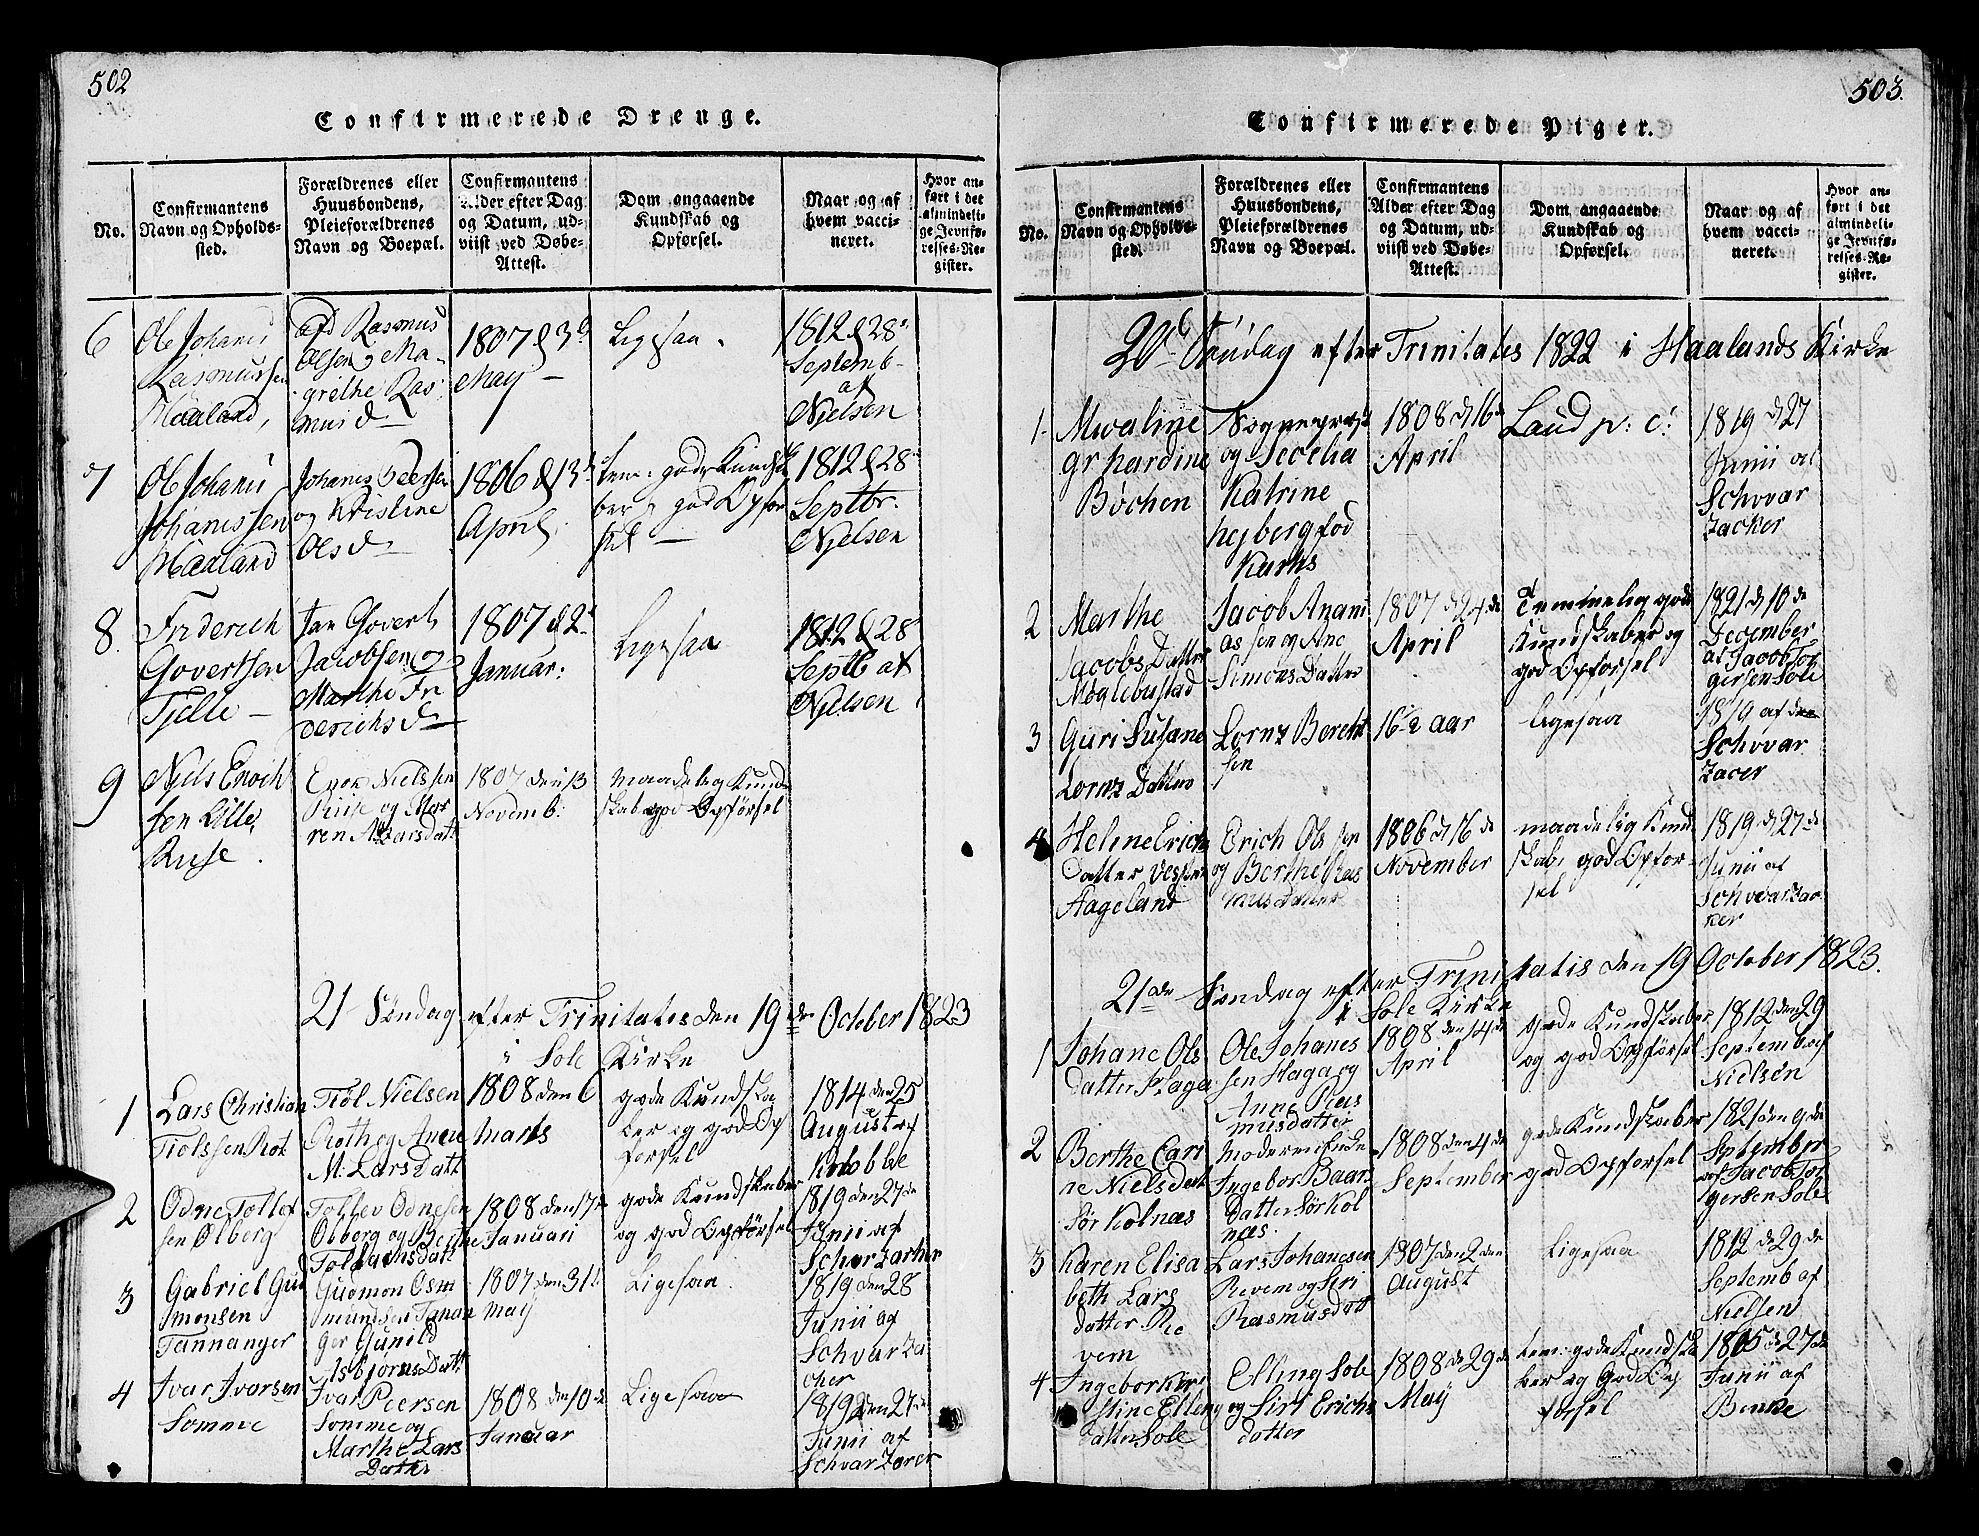 502
Confirmerede Drenge.
No.
Confirmantens
Navn og Opholds-
sted.
Forældrenes eller
Huusbondens,
Pleieforældrenes
Navn og Boepæl.
Confirmantens
Alder efter Dag
og Datum, ud-
viist ved Døbe-
Attest.
Dom angaaende
Kundskab og
Opførsel.
Naar og af
hvem vacci-
neret.
Hvor an-
ført i det
almindeli-
ge Jevnfø-
relses-Re-
gister.
6
Ole Johanis
Rasmussen
Haaland,
Rasmus
Olsen og Ma-
grethe Ras-
mus d
1807 d 3d
May
Ligesaa.
1812 d 28
Septemb-
af
Nielsen
7
Ole Johanis
Johanissen
Haaland
Johanis Peersen
og Kristine
Ols d
1806 d 13
April
tem: gode Kundsk
ber og god Opfør
sel
1812 d 28
Septbr.
Nielsen
8.
Friderich
Govertsen
Tjelle
Jan Govert
Jacobsen og
Marthe Fri
derichs d
1807 d 2
Januar:
Ligesaa
1812 d 28
Septb af
Nielsen
9
Niels Enoch
sen Lille
Ruse.
Enoc Nielssen
Ruse og Ma
ren Larsdatt
1807 den 13
Novemb:
maadelig Kund
skab god Opførsel
21 Søndag efter Trinitatis den 19de October 1823
i Sole Kirke
1
Lars Christian
Tiølssen Rot
Tiøl Nielsen
Roth og Anne
M: Larsdatt
1808 den 6
Marts
gode Kundska
ber og god Op
førsel
1814 den 25
August af
Knobbe
2
Odne Tollef
sen Ølberg
Tollev Odnesen
Ølberg og Berthe
1808 den 17de
Januari
gode Kundskaber
og god Opførsel
1819 den 27de
Junii af
Schwarzacher
3
Gabriel Gud
monsen
Tannanger
Gudmon Osm
mundsen Tanan
ger Gunild
Asbjørns Datt
1807 den 31te
may
Ligesaa.
1819 den 28
Junii af
Schvarza
cher
4
Ivar Ivarsen
Somme
Ivar Peersen
Somme og
Marthe Lars
Datter
1808 den 10de
Januar
Ligesaa
1819 den 27de
Junii af
Schvarzacer
503.
Confirmerede Piger.
No.
Confirmantens
Navn og Opholds-
sted.
Forældrenes eller
Huusbondens,
Pleieforældrenes
Navn og Boepæl.
Confirmantens
Alder efter Dag
og Datum, ud-
viist ved Døbe-
Attest.
Dom angaaende
Kundskab og
Opførsel.
Naar og af
hvem vacci-
neret.
Hvor an-
ført i det
almindeli-
ge Jevnfø-
relses-Re-
gister.
20de Søndag efter Trinitatis 1822 i Haalands Kirke
1-
gerhardine
Bøchen
Sognepræst
og Secelia
Katrine
hejberg fød
1808 d 16
April
Laud p: c:
1819 d 27
Junii af
Schvar
zacker
2
Marthe
Jacobs Datter
Møglebustad
Jacob Anani
as sen og Ane
Simons Datter
1807 d 24de
April
Temmelig gode
Kundskaber og
god Opførsel
1821 d 10de
December
af Jacob Tor
gersen Sole
3
Guri Susane
Lornz Datter
Lornz Berent
sen
16 1/2 aar
ligesaa
1819 af den
Schvar
zacer
4
Helene Erichs
datter Vestre
Aageland
Erich Ols sen
og Berthe Ras
mus Datter
1806 d 16de
November
maadelig Kund
skab, god Opfør-
sel
1819 d 27de
Junii af
Schvarzac
ker
21de Søndag efter Trinitatis den 19 October 1823.
i Sole Kirke
1
Johane Ols
datter Haga
Ole Johanes
sen Haga og
Anne Ras
musdatter
1808 den 14de
April
gode Kundskaber
og god Opførsel
1812 den 29
Septemb af
Nielsen
2
Berthe Cari
ne Nielsdatt
Sør Kolnæs
moderen Enke
Ingebor Baars
datter Sør Kol
næs.
1808 den 4de
September
gode Kundskaber
god Opførsel
1821 den 9de
September
af Jacob Tor
gersen Sole
3
Karen Elisa
beth Lars
datter Re
vem
Lars Johanesen
Revem og Siri
Rasmusdatt
1807 den 2den
August
Ligesaa
1812 d 29de
Septemb af
Nielsen
4
Ingebor Kri
stine Elling
datter Sole
Elling Sole
og Siri Erichs
datter
1808 d 29de
May
tem: gode Kundska
ber og God Op
førsel
1805 d 27de
Junii af
Benke